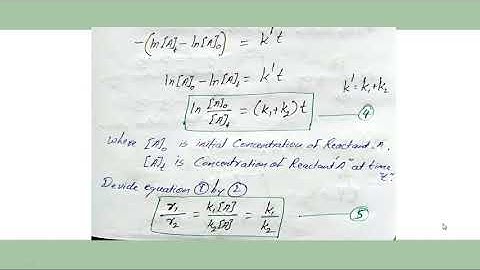 -(ln[A]t - ln[A]0) = k't
ln[A]0 - ln[A]t = k't
k' = k1 + k2
ln [A]0/[A]t = (k1 + k2) t — ④
where [A]0 is initial Concentration of Reactant A.
[A]t is Concentration of Reactant "A" at time
"t".
Devide equation ① by ②
r1/r2 = k1[A]/k2[A] = k1/k2 — ⑤